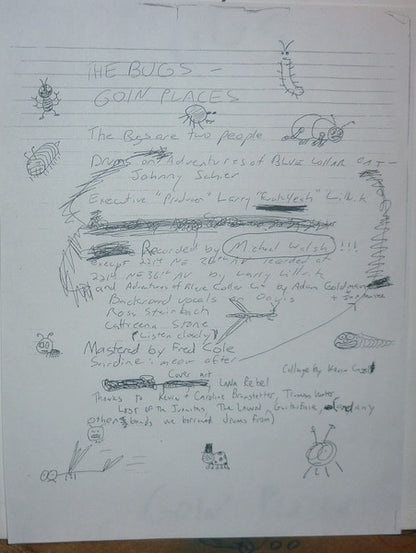 THE BUGS –
GOIN PLACES
The Bugs are two people
Drums on Adventures of BLUE COLLAR CAT –
Johnny Sahier
Executive "Producer" Larry "Yeah"
Recorded by Michael Walsh !!!
except 22nd NE 28th AV recorded at
22nd NE 36th AV by Larry
and Adventures of Blue Collar Cat by Adam Goldman
Background vocals
Ross Steinbach
Cattreena Stone
(Listen closely)
Mastered by Fred Cole
Sardine's meow after
Cover art Collage by Kevin
Luna Rebel
Thanks to Kevin & Caroline Branstetter, Thomas
Lost of the Juanitas, The Lawn, Guitarface (and any
other bands we borrowed drums from)